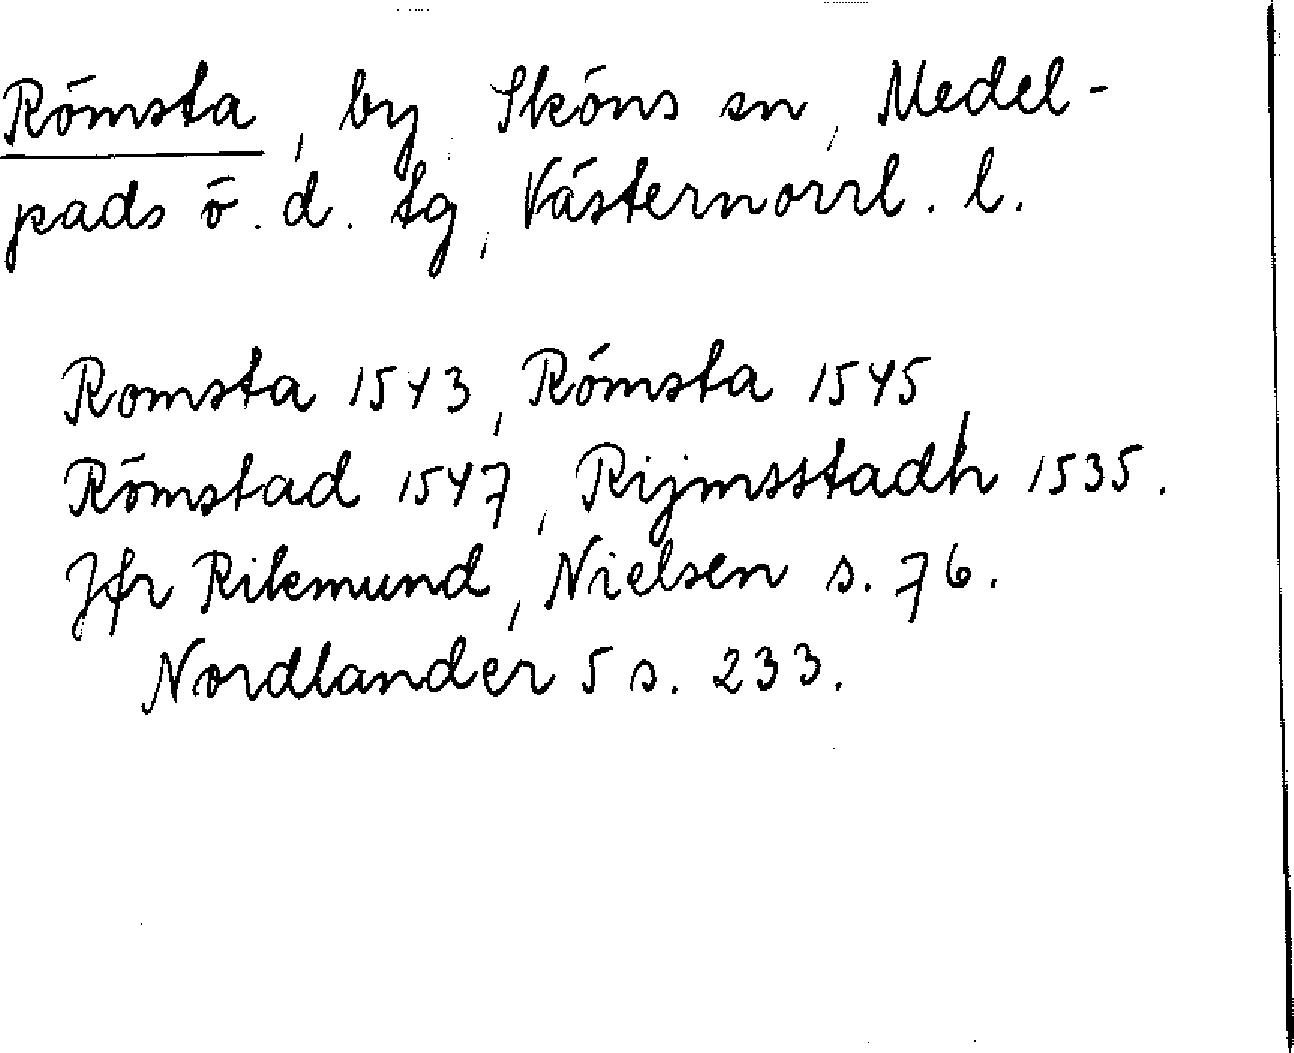 Römsta, by, Sköns sn, Medel-
pads ö. d. tg, Västernorrl. l.
Romsta 1543, Römsta 1545,
Römstad 1547, Rijmsstadh 1535.
Jfr Rikmund, Nielsen s. 76.
Nordlander 5 s. 233.